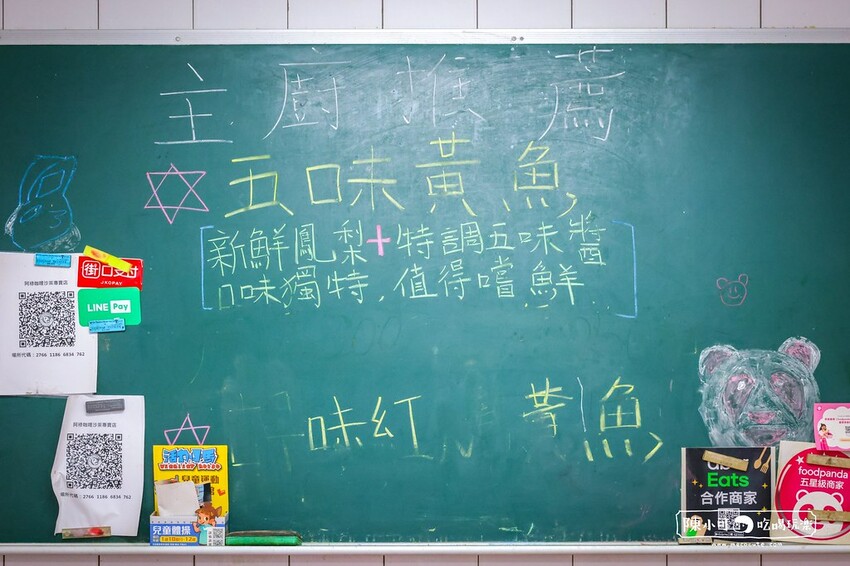 主廚推薦
五味黃魚
新鮮鳳梨+特調五味醬
口味獨特,值得嚐鮮
味紅
魚
街口支付
JKOPAY
LINE Pay
阿祿咖哩沙茶專賣店
場所代碼:2766 1186 6834 762
阿祿咖哩沙茶專賣店
場所代碼:2766 1186 6834 762
兒童體操
Eats
合作商家
foodpanda
五星級商家
陳小可 吃喝玩樂